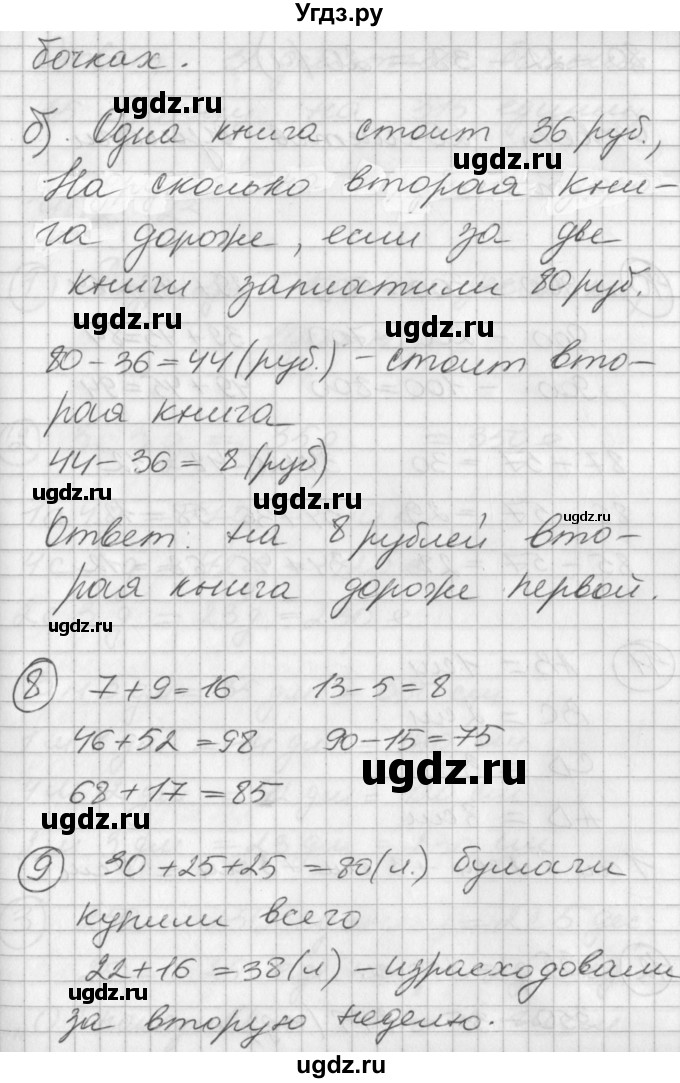 Угдз.ру
бочках.
ugdz.ru
б). Одна книга стоит 36 руб.,
ugdz.ru
На сколько вторая кни-
га дороже, если за две
ugdz.ru
книги заплатили 80 руб.
ugdz.ru ugdz.ru
80-36=44(руб.) - стоит вто-
рая книга
44-36= 8(руб)
ugdz.ru ugdz.ru
ugdz.ru
Ответ: на 8 рублей вто-
рая книга дороже первой.
ugdz.ru
⑧ 7+9=16 13-5=8
46+52=98 90-15=75
ugdz.ru
68+17=85
ugdz.ru
⑨ 30+25+25=80(л.) бумаги
купили всего
22+16=38(л) - израсходовали
ugdz.ru
за вторую неделю.
ugdz.ru
ugdz.ru